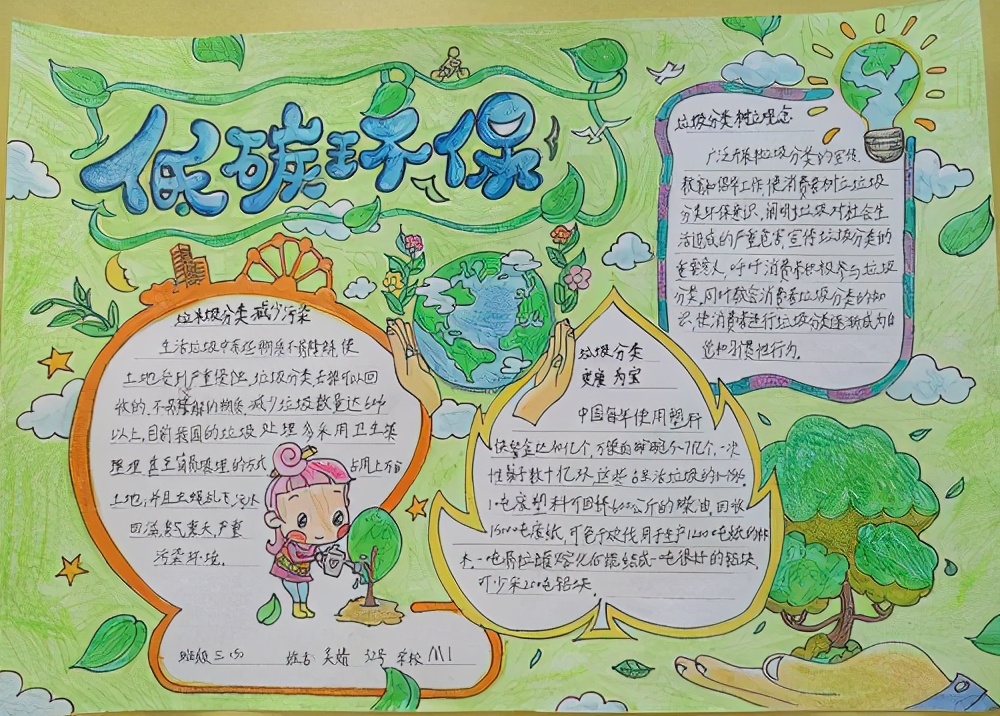 低碳环保
垃圾分类 减少污染
生活垃圾中有些物质不易降解,使
土地受到严重侵蚀。垃圾分类去掉可以回
收的、不易降解的物质,减少垃圾数量达60%
以上,目前我国的垃圾处理多采用卫生菜
埋埋甚至简易堆埋的方式 占用上万亩
土地,并且虫蝇乱飞 污水
四溢,臭气熏天,严重
污染环境。
班级 三 姓名 32号 学校
垃圾分类
变废为宝
中国每年使用塑料
快餐盒达40亿个 方便面碗 5-7亿个,一次
性筷子数十亿双,这些占生活垃圾的
1吨废塑料可回炼600公斤的柴油,回收
1500吨废纸,可免于砍伐用于生产1200吨纸的林
木。一吨易拉罐熔化后能结成一吨很好的铝块,
可少采20吨铝矿。
垃圾分类 树立理念
广泛开展垃圾分类的宣传
教育和倡导工作,使消费者树立垃圾
分类环保意识,阐明垃圾对社会生
活造成的严重危害,宣传垃圾分类的
重要意义,呼吁消费者积极参与垃圾
分类,同时教会消费者垃圾分类的知
识,使消费者进行垃圾分类逐渐成为自
觉和习惯性行为。